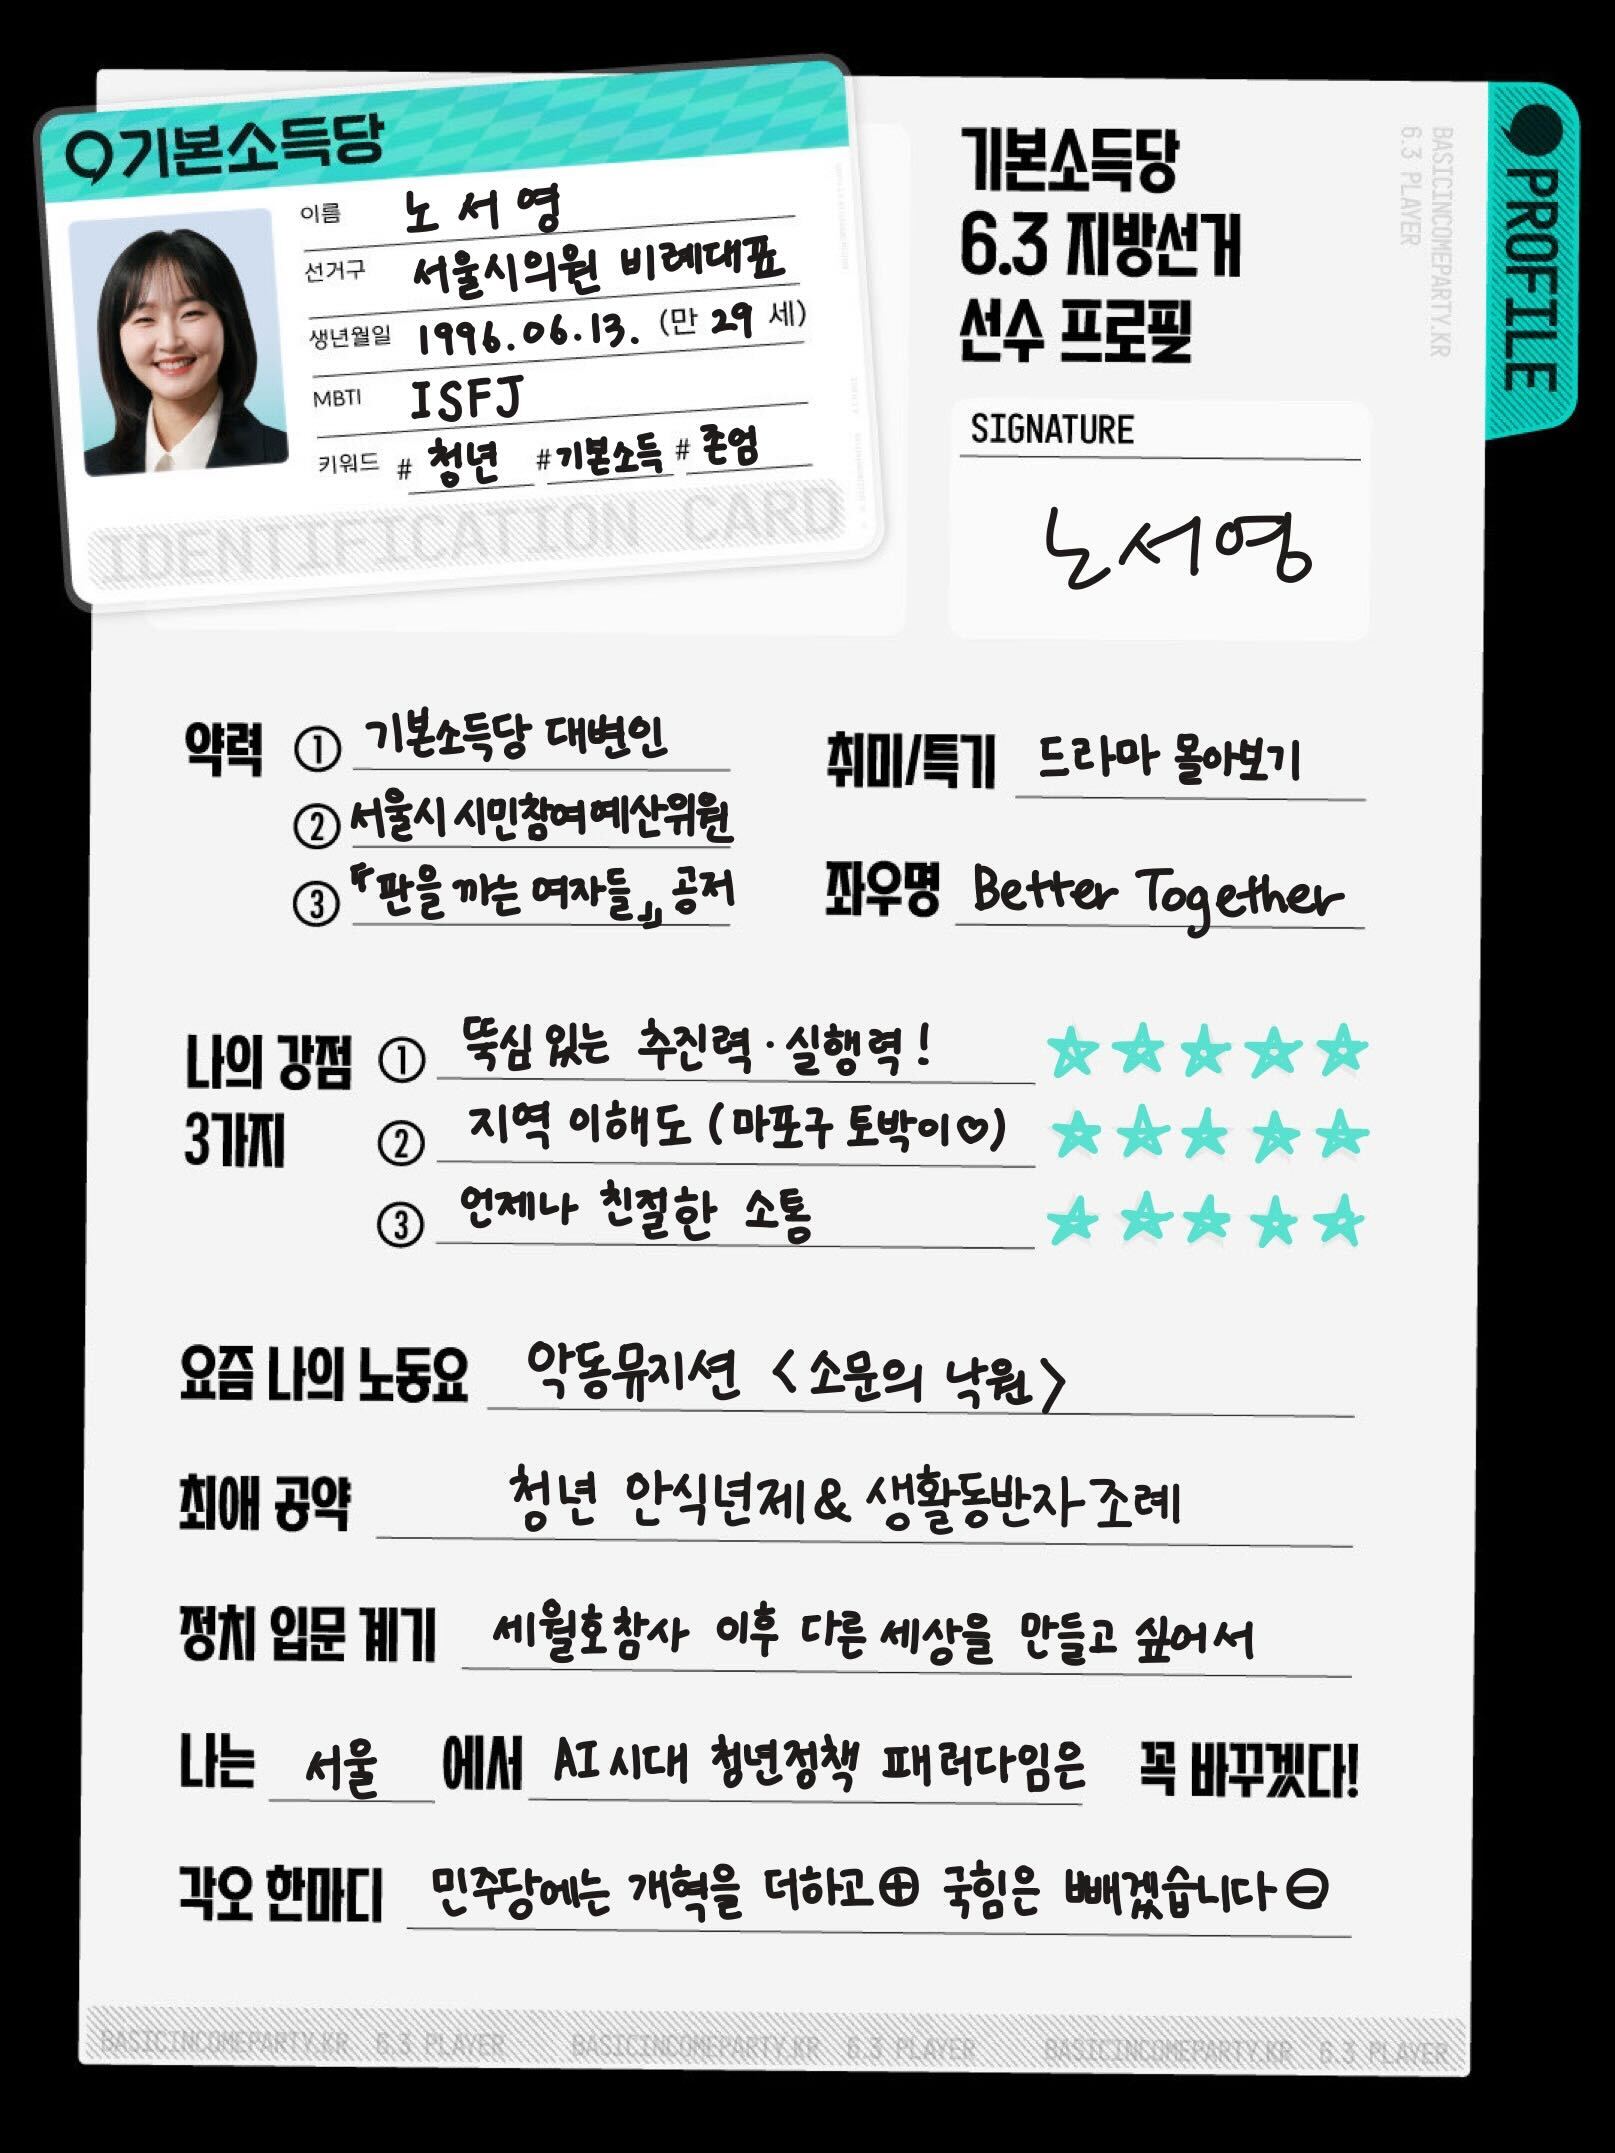 기본소득당
이름 노서영
선거구 서울시의원 비례대표
생년월일 1996.06.13. (만 29 세)
MBTI ISFJ
키워드 # 청년 # 기본소득 # 존엄
IDENTIFICATION CARD
기본소득당
6.3 지방선거
선수 프로필
BASICINCOMEPARTY.KR
6.3 PLAYER
PROFILE
SIGNATURE
노서영
약력 ① 기본소득당 대변인
② 서울시 시민참여예산위원
③ 『판을 까는 여자들』 공저
취미/특기 드라마 몰아보기
좌우명 Better Together
나의 강점
3가지
① 뚝심 있는 추진력·실행력! ☆☆☆☆☆
② 지역 이해도 (마포구 토박이♡) ☆☆☆☆☆
③ 언제나 친절한 소통 ☆☆☆☆☆
요즘 나의 노동요 악동뮤지션 <소문의 낙원>
최애 공약 청년 안식년제 & 생활동반자 조례
정치 입문 계기 세월호참사 이후 다른 세상을 만들고 싶어서
나는 서울 에서 AI시대 청년정책 패러다임은 꼭 바꾸겠다!
각오 한마디 민주당에는 개혁을 더하고⊕ 국힘은 빼겠습니다⊖
BASICINCOMEPARTY.KR 6.3 PLAYER BASICINCOMEPARTY.KR 6.3 PLAYER BASICINCOMEPARTY.KR 6.3 PLAYER